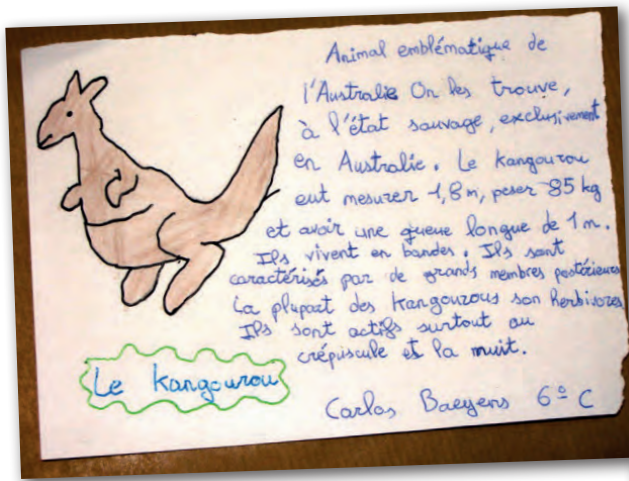 Animal emblématique de
l'Australie On les trouve,
à l'état sauvage, exclusivement
en Australie. Le kangourou
eut mesurer 1,8 m, peser 85 kg
et avoir une queue longue de 1 m.
Ils vivent en bandes. Ils sont
caractérisés par de grands membres postérieurs
La plupart des kangourous son herbivores
Ils sont actifs surtout au
crépuscule et la nuit.
Le kangourou
Carlos Baeyens 6º C